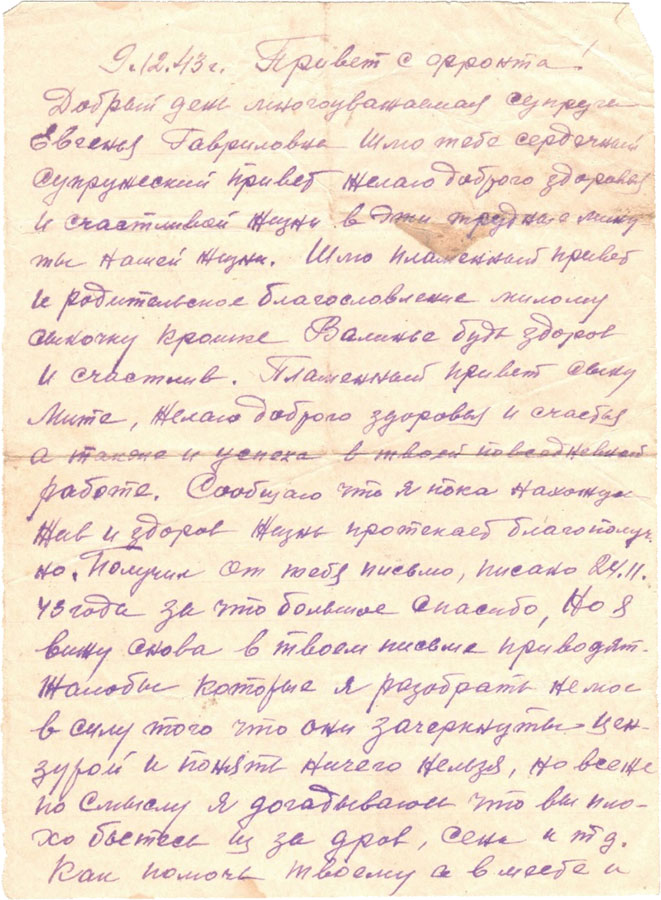 9.12.43 г. Привет с фронта!
Добрый день многоуважаемая супруга
Евгенья Гавриловна Шлю тебе сердечный
супружеский привет желаю доброго здоровья
и счастливой жизни в эти трудные мину
ты нашей жизни. Шлю пламенный привет
и родительское благословление милому
сыночку крошке Валинье будь здоров
и счастлив. Пламенный привет сыну
Мите, желаю доброго здоровья и счастья
а также и успеха в твоей повседневной
работе. Сообщаю что я пока нахожусь
жив и здоров Жизнь протекает благополуч
но. Получил от тебя письмо, писано 24.11.
43 года за что большое спасибо, Но я
вижу снова в твоем письме приводят-
жалобы которые я разобрать не мог
в силу того что они зачеркнуты цен-
зурой и понять ничего нельзя, но все же
по смыслу я догадываюсь что вы пло-
хо бьетесь из за дров, сена и т д.
Как помочь твоему а вместе и